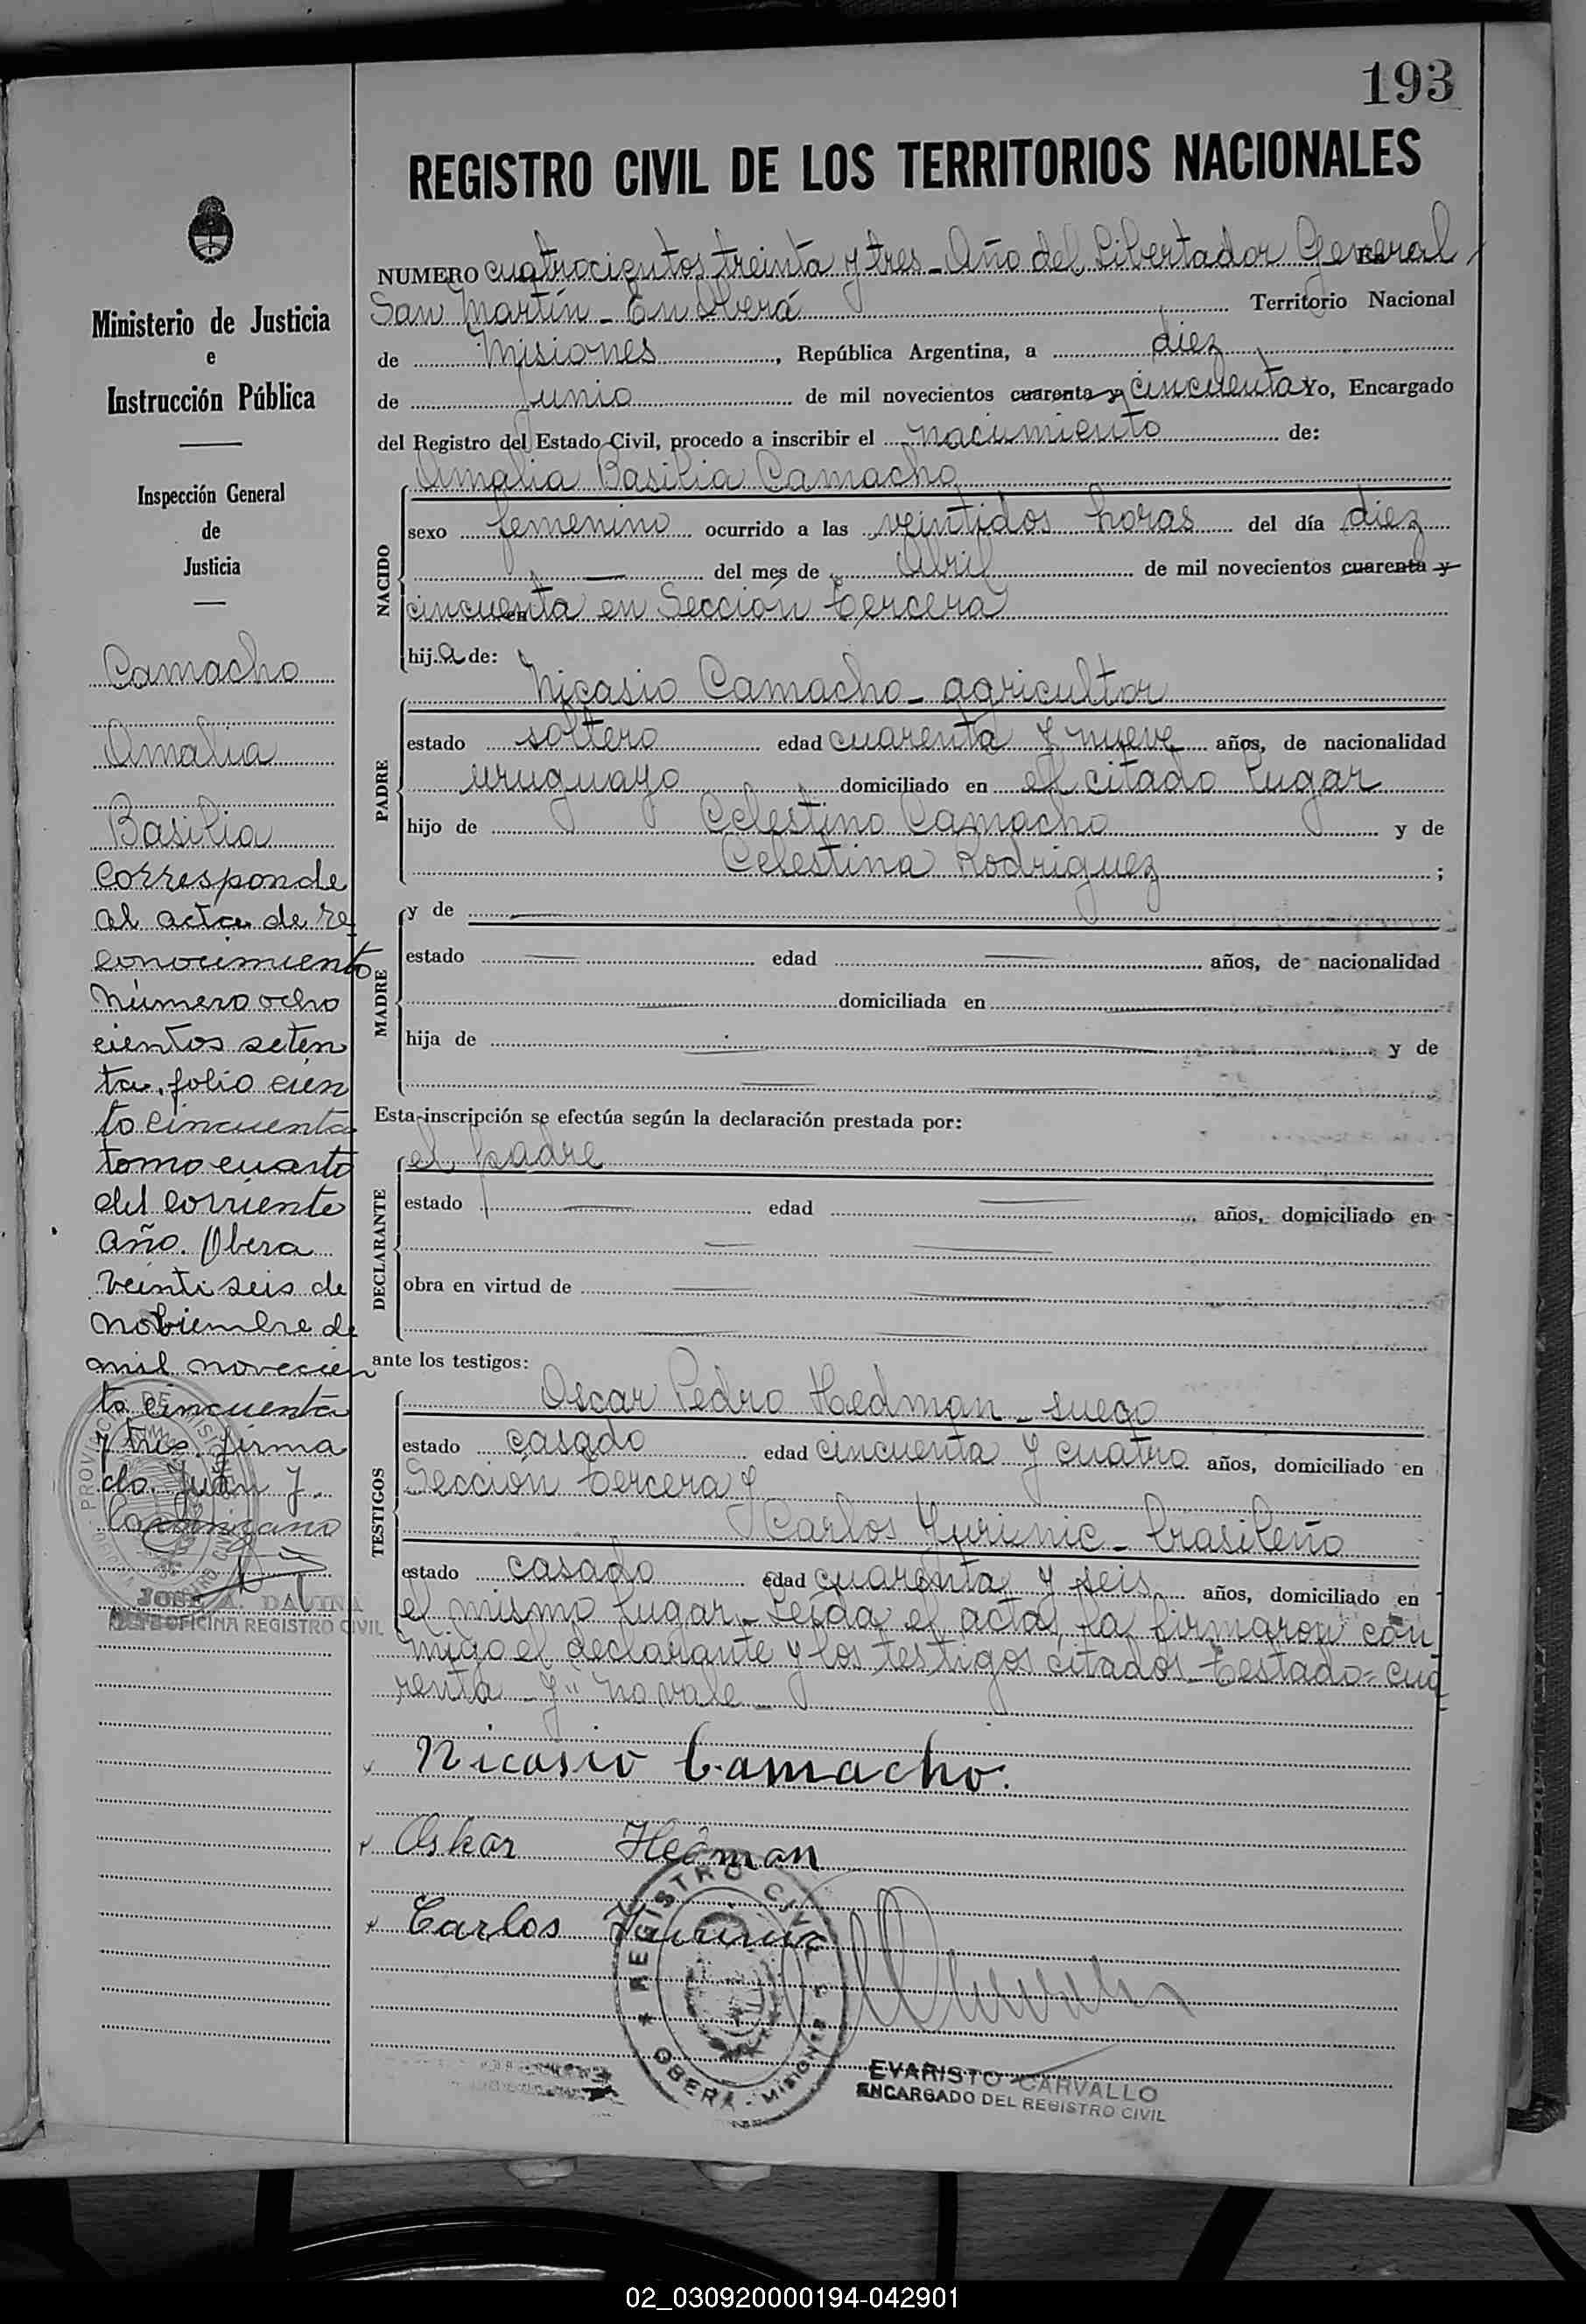 193
REGISTRO CIVIL DE LOS TERRITORIOS NACIONALES
NUMERO cuatrocientos treinta y tres - Año del Libertador General
San Martín - En Oberá Territorio Nacional
de Misiones, República Argentina, a diez
de Junio de mil novecientos cuarenta y cincuenta Yo, Encargado
del Registro del Estado Civil, procedo a inscribir el nacimiento de:
Amalia Basilia Camacho
NACIDO
sexo femenino ocurrido a las veintidos horas del día diez
— del mes de Abril de mil novecientos cuarenta y
cincuenta en Sección tercera
hija de:
Nicasio Camacho - agricultor
PADRE
estado soltero edad cuarenta y nueve años, de nacionalidad
uruguayo domiciliado en el citado lugar
hijo de Celestino Camacho y de
Celestina Rodriguez ;
MADRE
y de —
estado — edad — años, de nacionalidad
— domiciliada en —
hija de — y de
—
Esta inscripción se efectúa según la declaración prestada por:
DECLARANTE
el padre
estado — edad — años, domiciliado en
—
obra en virtud de —
—
ante los testigos:
TESTIGOS
Oscar Pedro Hedman - sueco
estado casado edad cincuenta y cuatro años, domiciliado en
Sección tercera y
Carlos Yurinic - brasileño
estado casado edad cuarenta y seis años, domiciliado en
el mismo lugar - Leída el acta, la firmaron con
migo el declarante y los testigos citados - testado = cua
renta - y" no vale -
Nicasio Camacho.
Oskar Hedman
Carlos
REGISTRO CIVIL
OBERA - MISIONES
EVARISTO CARVALLO
ENCARGADO DEL REGISTRO CIVIL
Ministerio de Justicia
e
Instrucción Pública
Inspección General
de
Justicia
Camacho
Amalia
Basilia
Corresponde
al acta de re
conocimiento
número ocho
cientos seten
ta, folio cien
to cincuenta
tomo cuarto
del corriente
año. Obera
veinti seis de
nobiembre de
mil novecien
to cincuenta
y tres. firma
do. Juan J.
JOSE A. DAVIÑA
JEFE OFICINA REGISTRO CIVIL
02_030920000194-042901